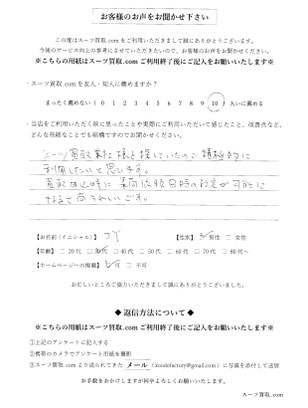 お客様のお声をお聞かせ下さい
この度はスーツ買取.comをご利用いただきまして誠にありがとうございます。
今後のサービス向上の参考にさせていただきたいので、お客様のお声をお聞かせください。
※こちらの用紙はスーツ買取.comご利用終了後にご記入をお願いいたします※
・スーツ買取.comを友人・知人に薦めますか?
まったく薦めない(0 1 2 3 4 5 6 7 8 9 10)大いに薦める
・当店をご利用いただく前に思ったことや実際にご利用いただいて感じたこと、改善点など、
どんな些細なことでも結構ですのでお聞かせください。
スーツ買取業社様を探していたので積極的に
利用したいと思います。
買取発送時に集荷依頼日時の設定が可能に
なると尚うれしいです。
【お名前(イニシャル)】 JY 【性別】 男性 ・ 女性
【年齢】 20代 30代 40代 50代 60代 70代 80代〜
【ホームページへの掲載】 可 不可
お忙しいところご協力いただきまして誠にありがとうございました。
◆ 返信方法について ◆
※こちらの用紙はスーツ買取.comご利用終了後にご記入をお願いいたします※
①上記のアンケートに記入する
②携帯のカメラでアンケート用紙を撮影
③スーツ買取.comより送られてきた メール (koodofactory@gmail.com) に写真を添付して送信
お手数をおかけしますが何卒よろしくお願いいたします。
スーツ買取.com